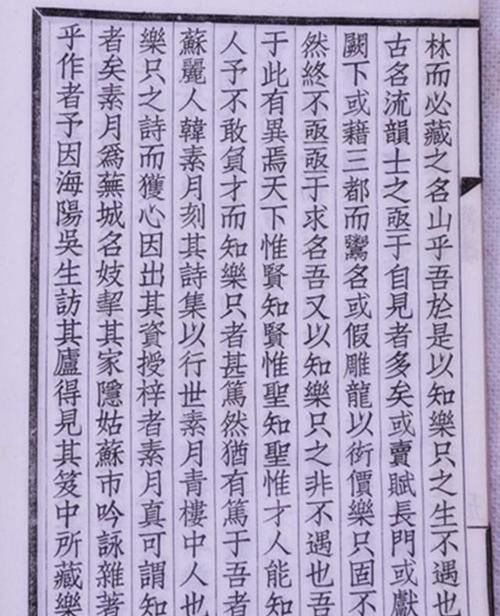 林而必藏之名山乎吾於是以知樂只之生不遇也
古名流韻士之亟于自見者多矣或賣賦長門或獻
闕下或藉三都而鸞名或假雕龍以衒價樂只固不
然終不亟亟于求名吾又以知樂只之非不遇也吾
于此有異焉天下惟賢知賢惟聖知聖惟才人能知
人予不敢負才而知樂只者甚篤然猶有篤于吾者
蘇麗人韓素月刻其詩集以行世素月青樓中人也
樂只之詩而獲心因出其資授梓者素月真可謂知
者矣素月為蕪城名妓挈其家隱姑蘇市吟詠雜著
乎作者予因海陽吳生訪其廬得見其笈中所藏樂